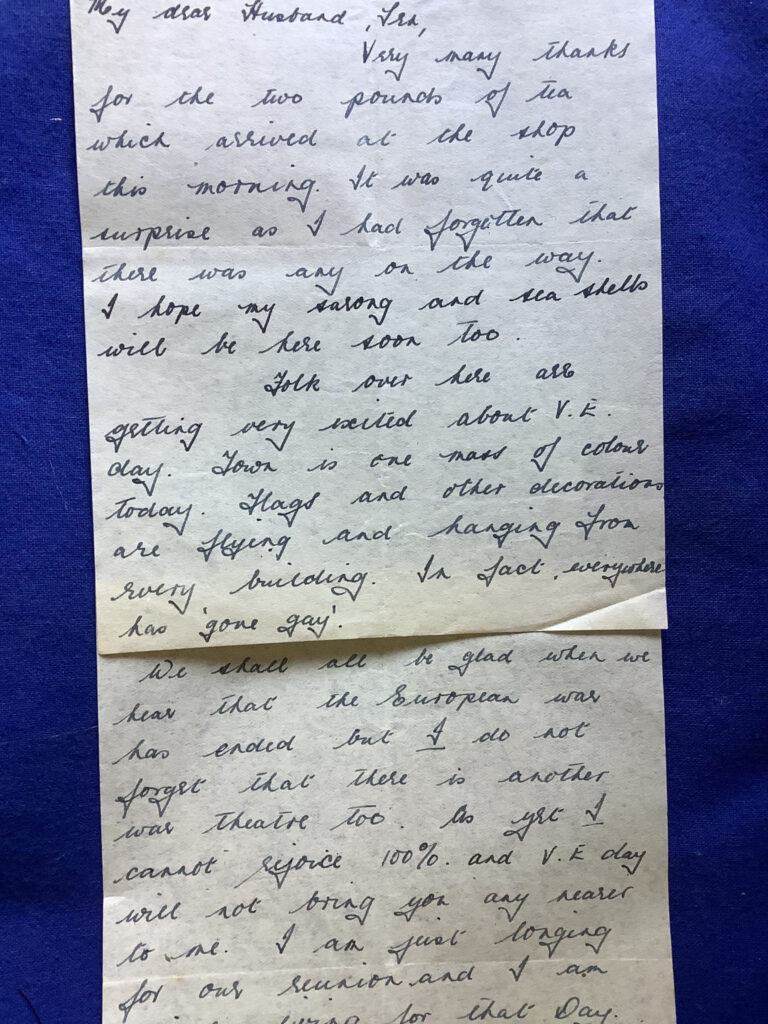 My dear Husband, Len,
Very many thanks
for the two pounds of tea
which arrived at the shop
this morning. It was quite a
surprise as I had forgotten that
there was any on the way.
I hope my sarong and sea shells
will be here soon too.
Folk over here are
getting very exited about V.E.
day. Town is one mass of colour
today. Flags and other decorations
are flying and hanging from
every building. In fact, everywhere
has 'gone gay'.
We shall all be glad when we
hear that the European war
has ended but I do not
forget that there is another
war theatre too. As yet I
cannot rejoice 100%. and V.E day
will not bring you any nearer
to me. I am just longing
for our reunion and I am
living for that Day.